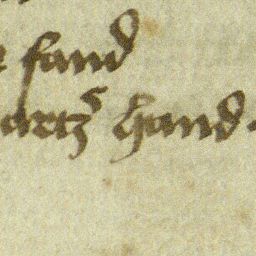 fand
artzs hand